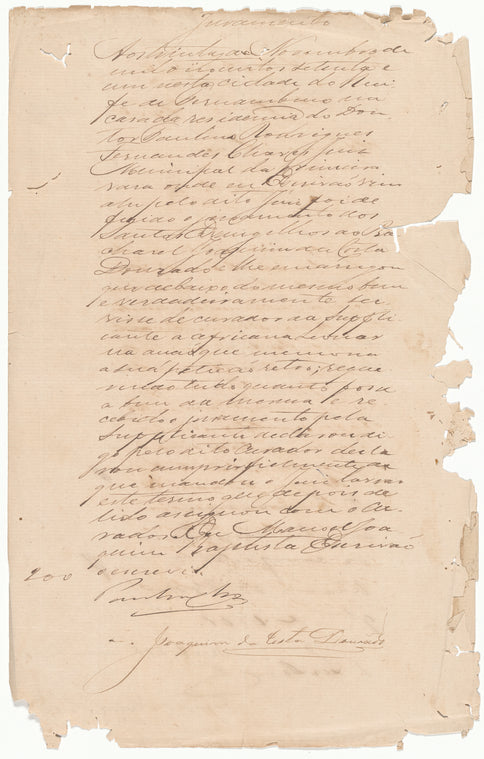 Juramento
Aos trinta de Novembro de
mil oitocentos setenta e
um nesta cidade do Reci-
fe de Pernambuco na
casa da residencia do Dou-
tor Paulino Rodrigues
Fernandes Chaves Juiz
Municipal da primeira
vara onde eu Escrivão vim
ahi pelo dito Juiz foi de-
ferido o juramento dos
Santos Evangelhos ao Ba-
charel Joaquim da Costa
Dourado e lhe encarregou
que debaixo do mesmo bem
e verdadeiramente ser-
visse de curador da suppli-
cante a africana
na que menciona
a sua petição retro; reque-
rendo tudo quanto for a
a bem da mesma e re-
cebido o juramento pela
supplicante declarou di-
go pelo dito Curador decla-
rou cumprir fielmente do
que mandou o Juiz lavrar
este termo que depois de
lido assignou com o Cu-
rador. Eu Manoel Joa-
quim Baptista Escrivão
escrevi.
200
Joaquim da Costa Dourado